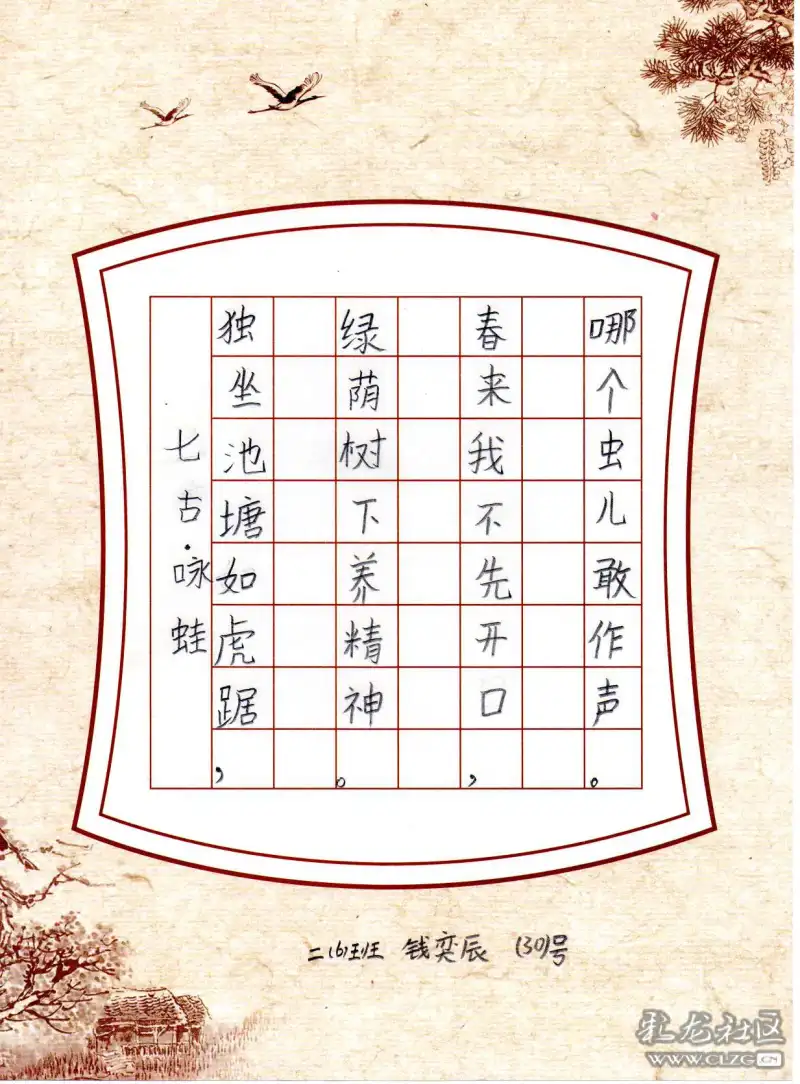 七古·咏蛙
独坐池塘如虎踞，
绿荫树下养精神。
春来我不先开口，
哪个虫儿敢作声。
二(6)班 钱奕辰 (30)号
私龙社区
WWW.CLZG.CN